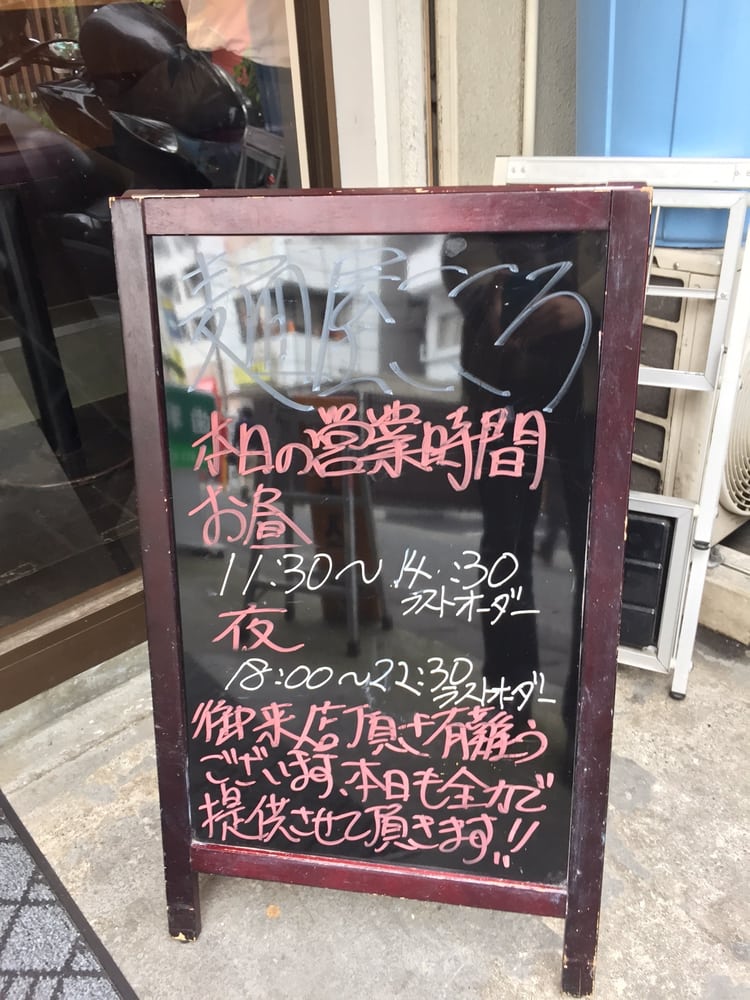 麺屋こころ
本日の営業時間
お昼
11:30〜14:30
ラストオーダー
夜
18:00〜22:30
ラストオーダー
御来店頂き有難う
ございます、本日も全力で
提供させて頂きます!!